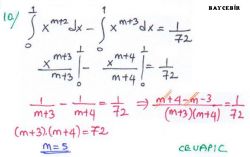 BAYCEBİR
10/ ∫₀¹ x^{m+2} dx - ∫₀¹ x^{m+3} dx = 1/72
x^{m+3}/(m+3) |₀¹ - x^{m+4}/(m+4) |₀¹ = 1/72
1/(m+3) - 1/(m+4) = 1/72 ⇒ (m+4-m-3)/((m+3)(m+4)) = 1/72
(m+3).(m+4) = 72
m=5
CEVAPIC